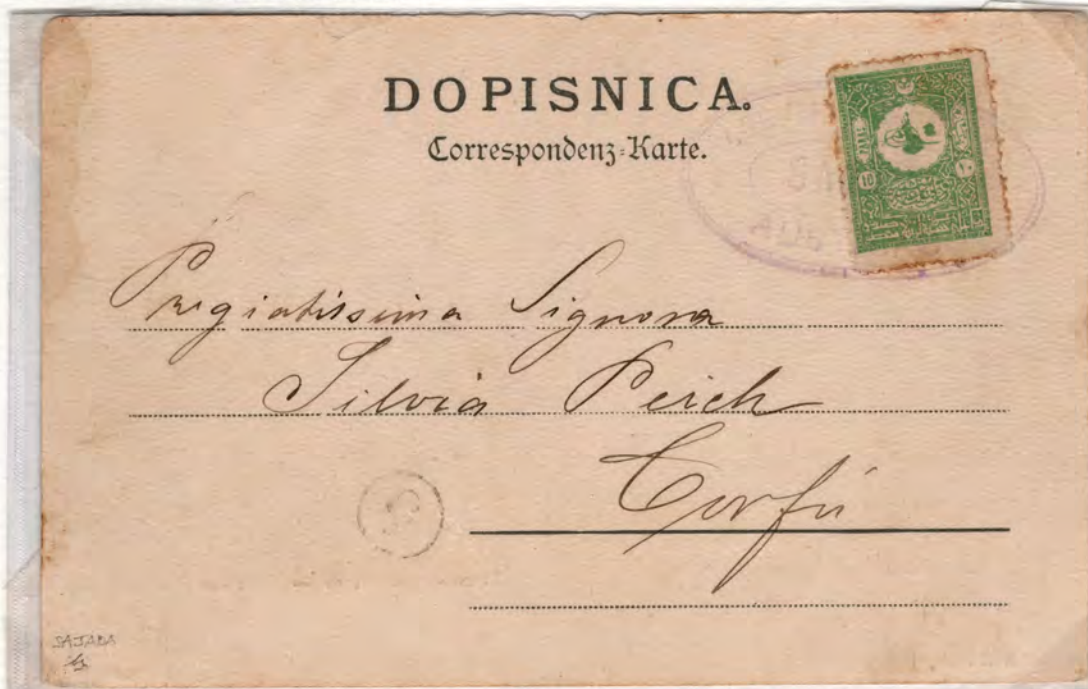 DOPISNICA.
Correspondenz-Karte.
PARAS
10 ١٠
Pregiatissima Signora
Silvia Peich
Corfú
SAJADA